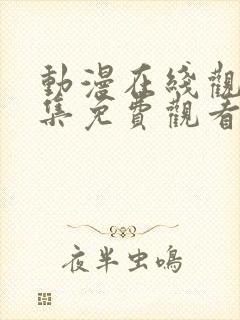 動漫在綫觀
集免費觀看
夜半虫鳴